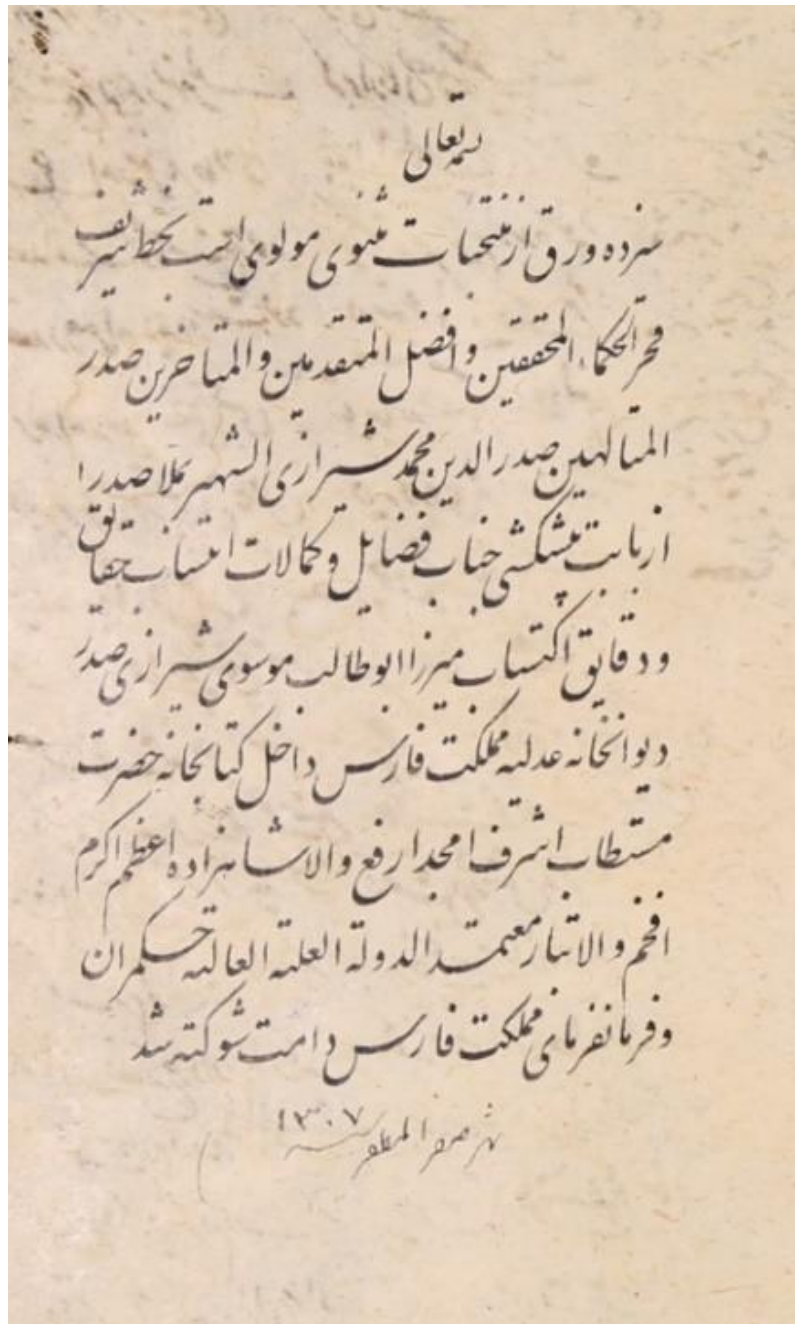 بسمه تعالی
سیزده ورق از منتخبات مثنوی مولوی است بخط شریف
فخر الحکماء المحققین و افضل المتقدمین والمتاخرین صدر
المتالهین صدر الدین محمد شیرازی الشهیر بملا صدرا
از بابت پیشکشی جناب فضایل و کمالات انتساب حقایق
و دقایق اکتساب میرزا ابوطالب موسوی شیرازی صدر
دیوانخانه عدلیه مملکت فارس داخل کتابخانه حضرت
مستطاب اشرف امجد ارفع والا شاهزاده اعظم اکرم
افخم والاتبار معتمد الدولة العلیه العالیه حکمران
و فرمانفرمای مملکت فارس دامت شوکته شد
شهر صفر المظفر سنه ۱۳۰۷